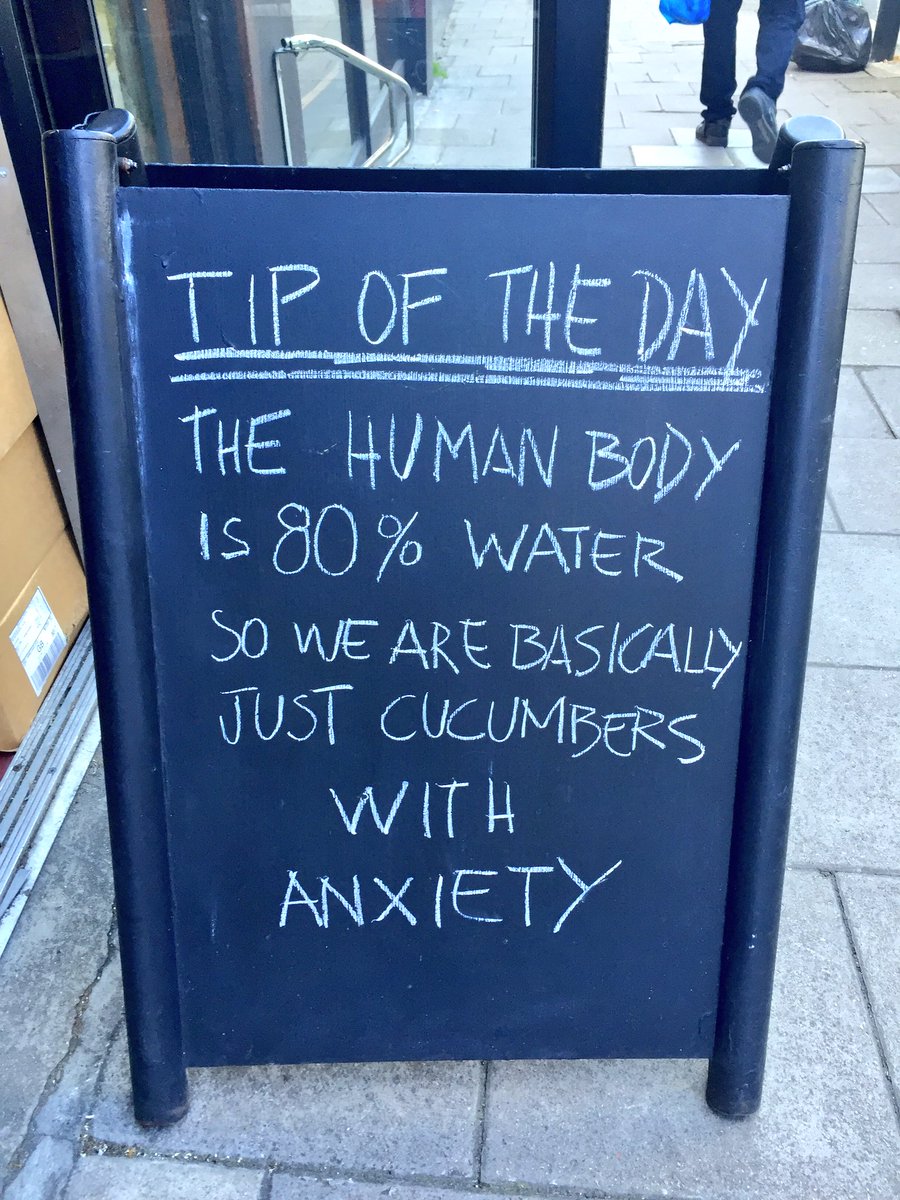 TIP OF THE DAY
THE HUMAN BODY
IS 80% WATER
SO WE ARE BASICALLY
JUST CUCUMBERS
WITH
ANXIETY